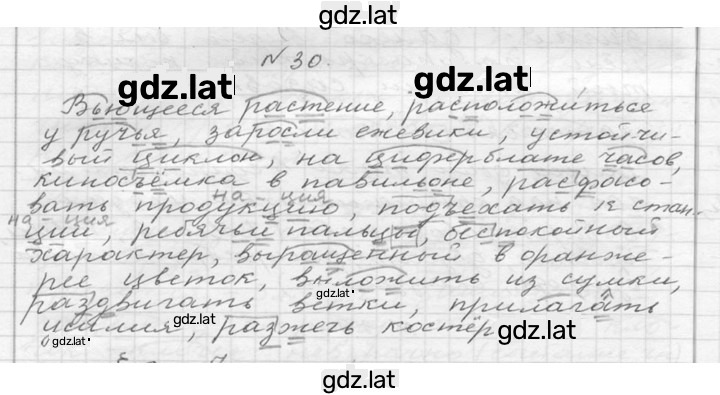 gdz.lat
N 30.
gdz.lat gdz.lat
Вьющееся растение, расположиться
у ручья, заросли ежевики, устойчи-
вый циклон, на циферблате часов,
киносъёмка в павильоне, расфасо-
на ция
вать продукцию, подъехать к стан-
на ция
ции, ребячьи пальцы, беспокойный
характер, выращенный в оранже-
рее цветок, выложить из сумки,
gdz.lat
раздвигать ветки, прилагать
усилия, разжечь костёр
gdz.lat gdz.lat
gdz.lat
gdz.lat